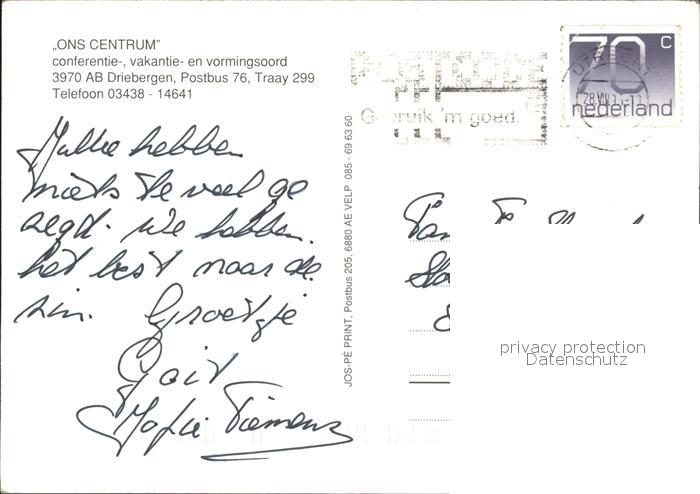 „ONS CENTRUM"
conferentie-, vakantie- en vormingsoord
3970 AB Driebergen, Postbus 76, Traay 299
Telefoon 03438 - 14641
POSTCODE
Gebruik 'm goed.
70 c
nederland
Jullie hebben
niets te veel ge
zegd. We hebben
het best naar de
zin. Groetje
Gait
Tiemens
JOS-PÉ PRINT, Postbus 205, 6880 AE VELP 085 - 69 63 60
Fam
privacy protection
Datenschutz